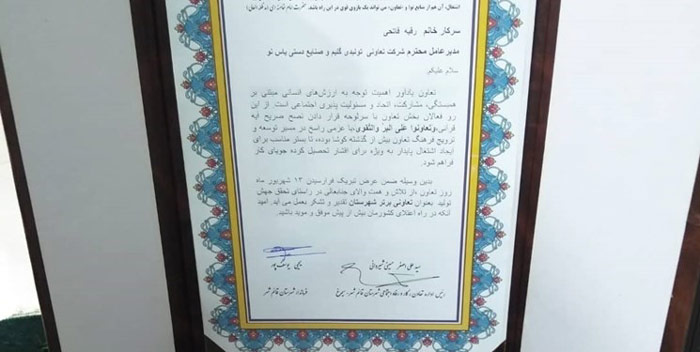 اشتغال، آن هم از منابع نوآ و «تعاون»، می تواند یک بازوی قوی در این راه باشد.
سرکار خانم رقیه فاتحی
مدیرعامل محترم شرکت تعاونی تولیدی گلیم و صنایع دستی یاس نو
سلام علیکم
تعاون یادآور اهمیت توجه به ارزش‌های انسانی مبتنی بر
همبستگی، مشارکت، اتحاد و مسئولیت پذیری اجتماعی است. از این
رو فعالان بخش تعاون با سرلوحه قرار دادن نصح صریح آیه
قرآنی،وتعاونوا علی البر والتقوی،با عزمی راسخ در مسیر توسعه و
ترویج فرهنگ تعاون بیش از گذشته کوشا بوده، تا بستر مناسب برای
ایجاد اشتغال پایدار به ویژه برای اقشار تحصیل کرده جویای کار
فراهم شود.
بدین وسیله ضمن عرض تبریک فرارسیدن ۱۳ شهریور ماه
روز تعاون ،از تلاش و همت والای جنابعالی در راستای تحقق جهش
تولید، بعنوان تعاونی برتر شهرستان تقدیر و تشکر بعمل می آید. امید
آنکه در راه اعتلای کشورمان بیش از پیش موفق و موید باشید.
سید علی اصغر حسینی شیروانی
یحیی یوسف پور
رئیس اداره تعاون، کار و رفاه اجتماعی شهرستان قائم شهر- سیمرغ
فرماندار شهرستان قائم شهر